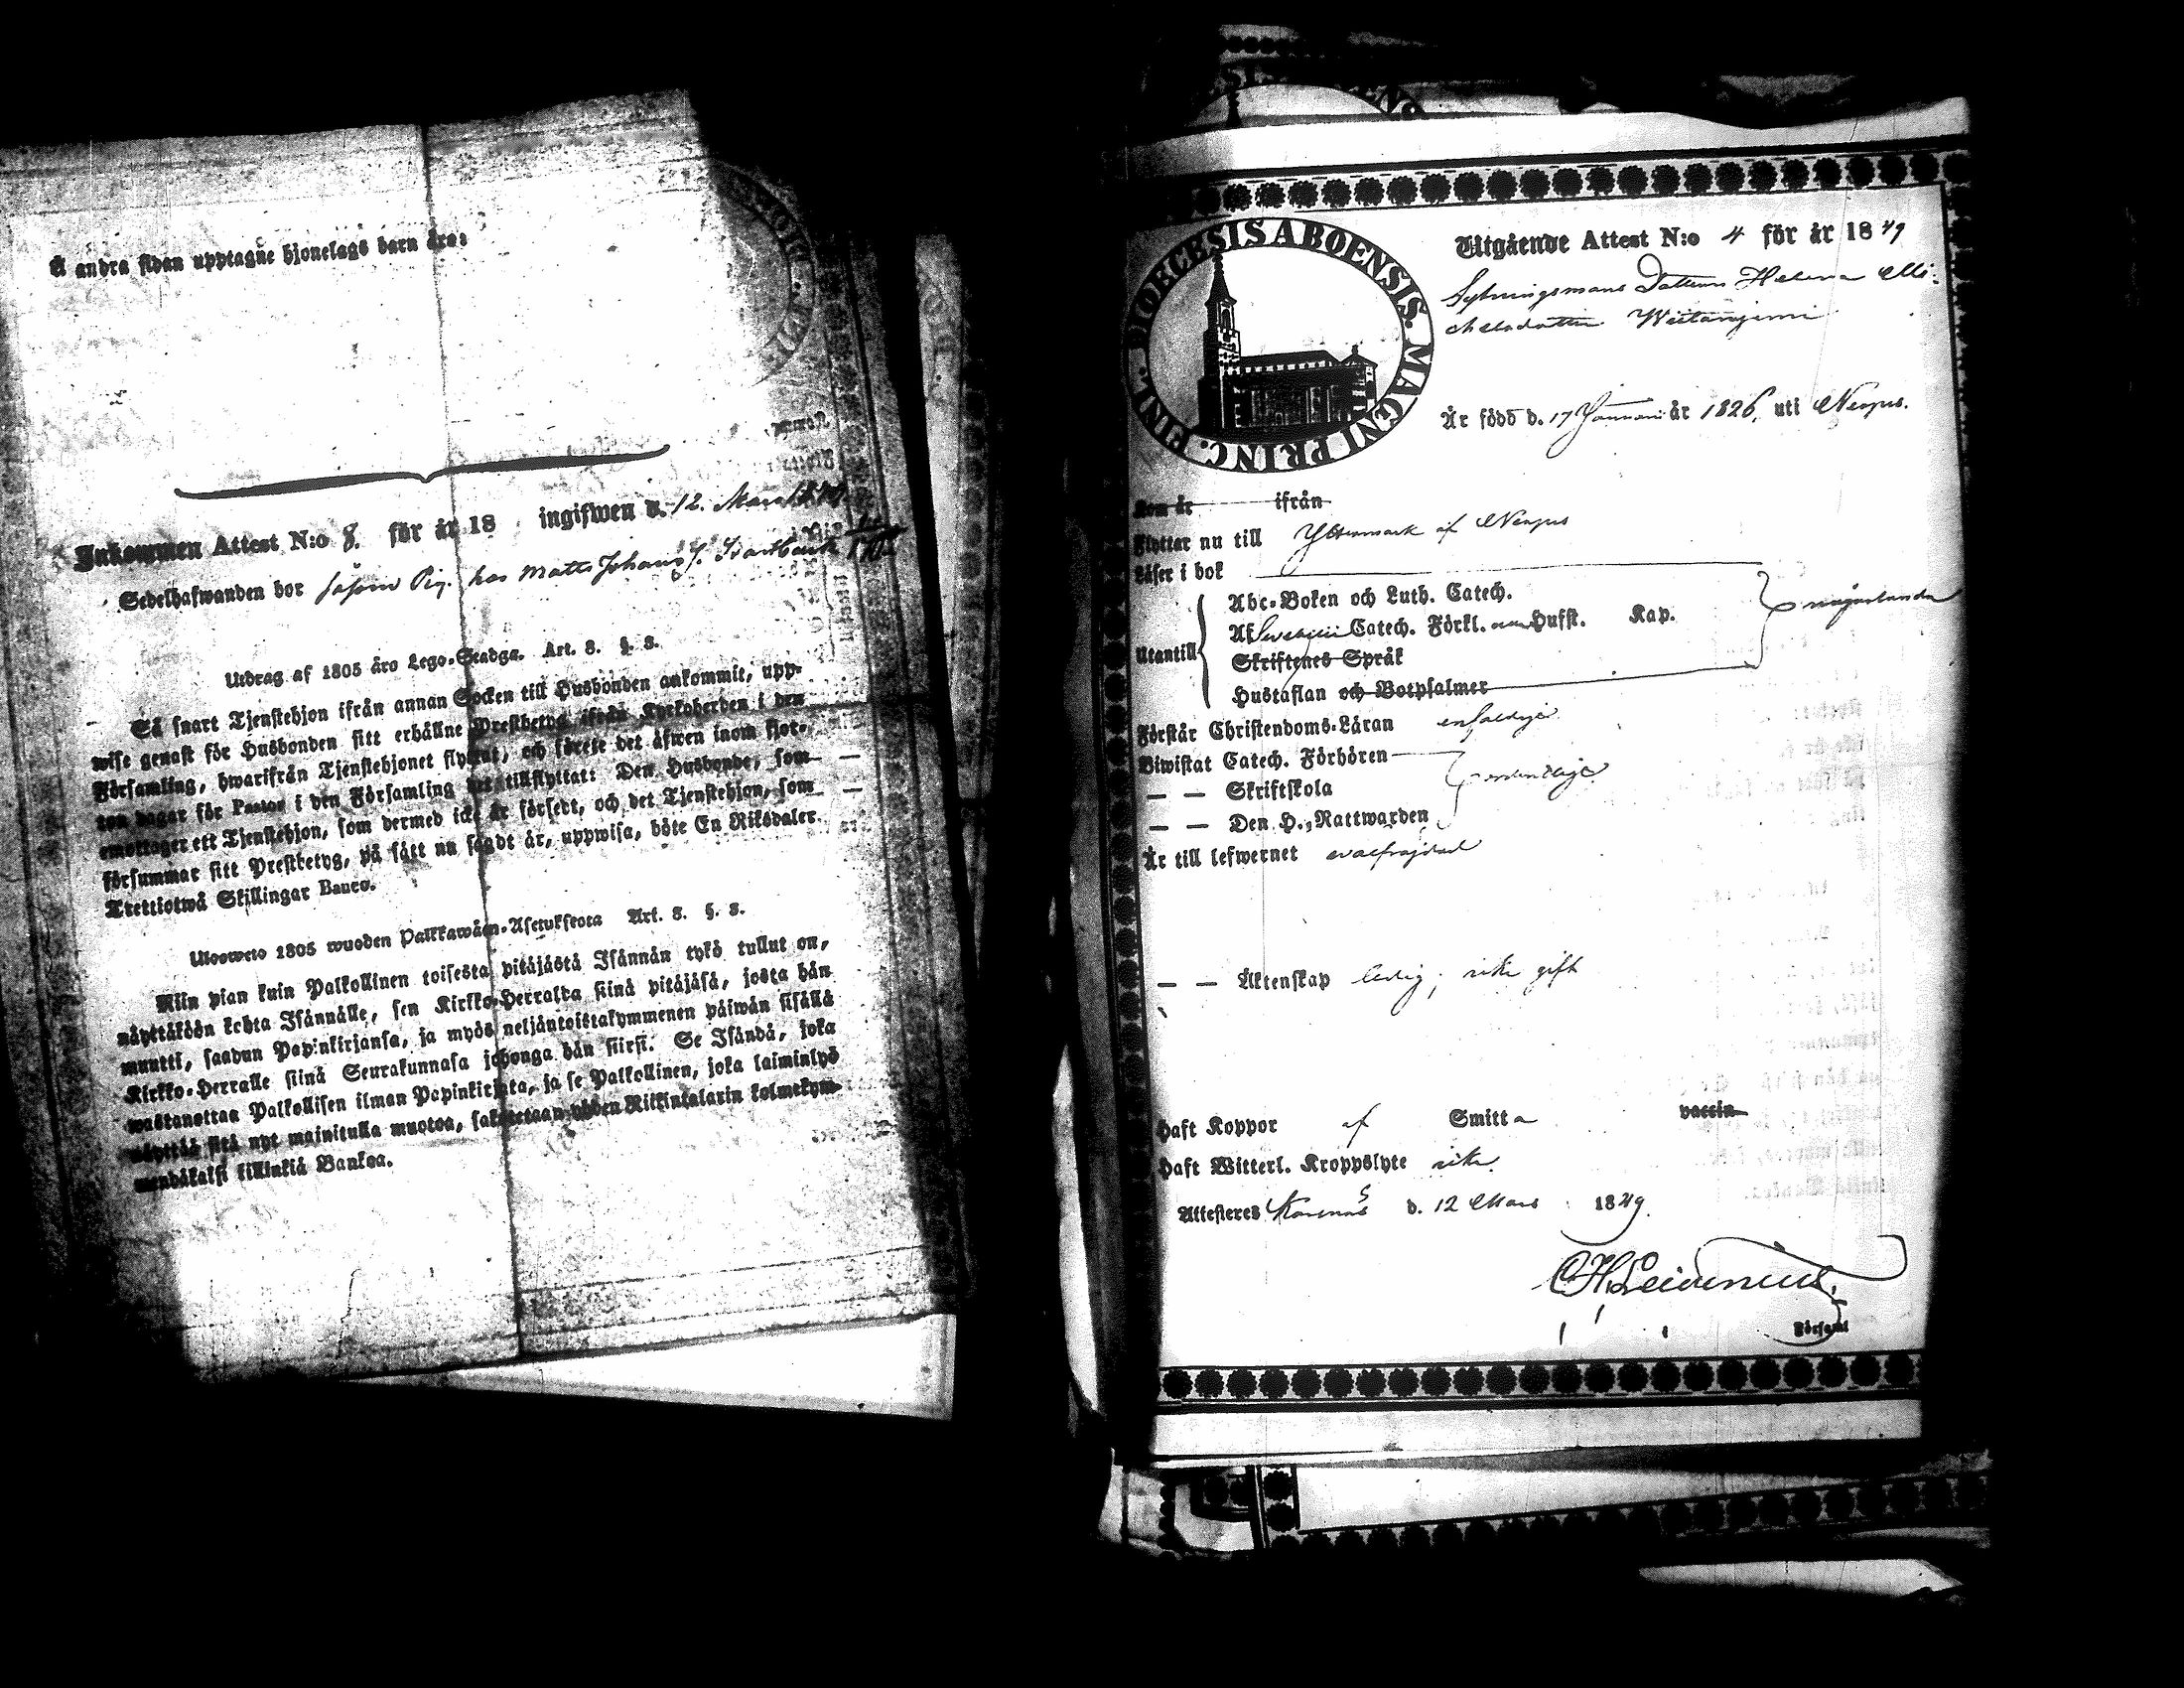 Å andra sidan upptagne hjonelags barn äro:
Inkommen Attest N:o 8. för år 18 ingifwen d. 12. Mars
Sedelhafwanden bor såsom Pig. hos Matts Johans
Utdrag af 1805 års Lego-Stadga. Art. 8. §. 8.
Så snart Tjenstehjon ifrån annan Socken till Husbonden ankommit, upp-
wise genast för Husbonden sitt erhållne Prestbetyg ifrån Kyrkoherden i den
Församling, hwarifrån Tjenstehjonet flyttat, och förete det äfwen inom fjor-
ton dagar för Pastor i den Församling det tillflyttat: Den Husbonde, som
emottager ett Tjenstehjon, som dermed icke är försedt, och det Tjenstehjon, som
försummar sitt Prestbetyg, på sätt nu sagdt är, uppwisa, böte En Riksdaler
Trettiotwå Skillingar Banco.
Ulosweto 1805 wuoden Palkkawäen-Asetuksesta Art. 8. §. 8.
Niin pian kuin Palkollinen toisesta pitäjästä Isännän tykö tullut on,
näyttäköön kohta Isännälle, sen Kirkko-Herralta siinä pitäjäsä, josta hän
muutti, saadun Papinkirjansa, ja myös neljäntoistakymmenen päiwän sisällä
Kirkko-Herralle siinä Seurakunnasa johonga hän siirsi. Se Isändä, joka
wastanottaa Palkollisen ilman Papinkirjata, ja se Palkollinen, joka laiminlyö
näyttää sitä nyt mainitulla muotoa, sakotetaan yhden Riikintalarin kolmekym-
mendäkaksi killinkiä Bankoa.
DIOECESIS ABOENSIS. MAGNI PRINC. FINL.
Utgående Attest N:o 4 för år 1849
Sytningsmans Dottern Helena Mi-
chelsdotter
Är född d. 17 Januari år 1826, uti Nerpes.
Kom år ifrån
Flyttar nu till Yttermark af Nerpes
Läser i bok
Abc-Boken och Luth. Catech.
Af Svebilii Catech. Förkl. Husst. Kap.
någorlunda
Utantill
Skriftenes Språk
Hustaflan och Botpsalmer
Förstår Christendoms-Läran enfaldige
Biwistat Catech. Förhören
— — Skriftskola
ordentlige
— — Den H. Nattwarden
Är till lefwernet wälfrejdad
— — Äktenskap ledig; icke gift
Haft Koppor af Smitta vaccin
Haft Witterl. Kroppslyte icke.
Attesteres Korsnäs d. 12 Mars 1849.
Församl